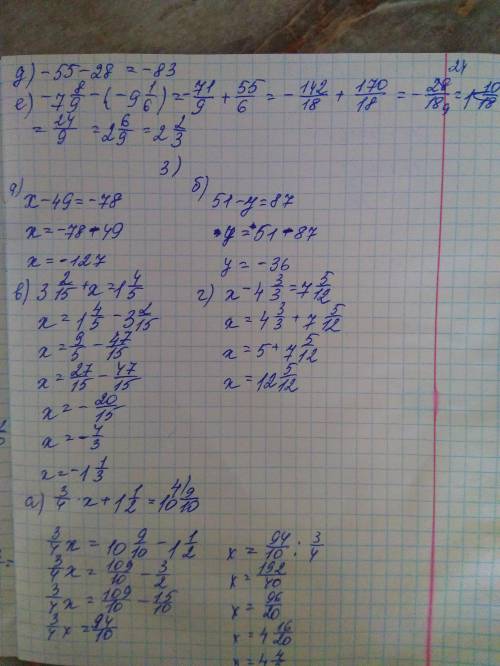 д) -55-28 = -83
е) -7 8/9 - (-9 1/6) = -71/9 + 55/6 = -142/18 + 170/18 = -28/18 = 1 10/18
= 24/9 = 2 6/9 = 2 2/3
3)
а) x-49=-78
x=-78-49
x=-127
б) 51-y=87
y=51-87
y=-36
в) 3 2/15 + x = 1 4/5
x = 1 4/5 - 3 2/15
x = 9/5 - 47/15
x = 27/15 - 47/15
x = -20/15
x = -4/3
x = -1 1/3
г) x - 4 3/3 = 7 5/12
x = 4 3/3 + 7 5/12
x = 5 + 7 5/12
x = 12 5/12
4)
а) 3/4 · x + 1 1/2 = 10 9/10
3/4 x = 10 9/10 - 1 1/2
3/4 x = 109/10 - 3/2
3/4 x = 109/10 - 15/10
3/4 x = 94/10
x = 94/10 : 3/4
x = 192/40
x = 96/20
x = 4 16/20
x = 4 4/